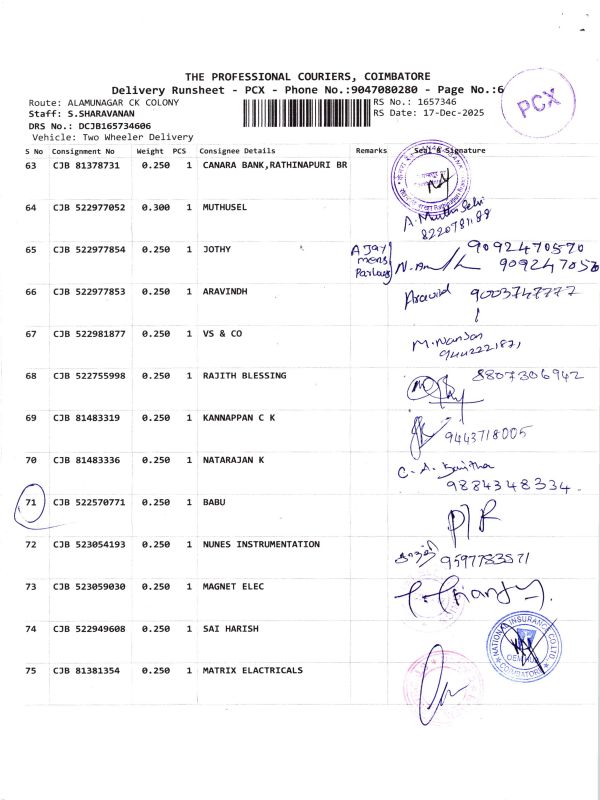 THE PROFESSIONAL COURIERS, COIMBATORE
Delivery Runsheet - PCX - Phone No.:9047080280 - Page No.:6
PCX
Route: ALAMUNAGAR CK COLONY
Staff: S.SHARAVANAN
DRS No.: DCJB165734606
Vehicle: Two Wheeler Delivery
RS No.: 1657346
RS Date: 17-Dec-2025
S No Consignment No Weight PCS Consignee Details Remarks Seal & Signature
63 CJB 81378731 0.250 1 CANARA BANK,RATHINAPURI BR
64 CJB 522977052 0.300 1 MUTHUSEL
A. Muthu Selvi
65 CJB 522977854 0.250 1 JOTHY Ajay 9092470570
mens
Parlour
66 CJB 522977853 0.250 1 ARAVINDH Aravind
67 CJB 522981877 0.250 1 VS & CO
68 CJB 522755998 0.250 1 RAJITH BLESSING 8807306942
69 CJB 81483319 0.250 1 KANNAPPAN C K 9443718005
70 CJB 81483336 0.250 1 NATARAJAN K
9884348334.
71 CJB 522570771 0.250 1 BABU
72 CJB 523054193 0.250 1 NUNES INSTRUMENTATION
9597783571
73 CJB 523059030 0.250 1 MAGNET ELEC
74 CJB 522949608 0.250 1 SAI HARISH
NATIONAL INSURANCE CO LTD
COIMBATORE
75 CJB 81381354 0.250 1 MATRIX ELACTRICALS